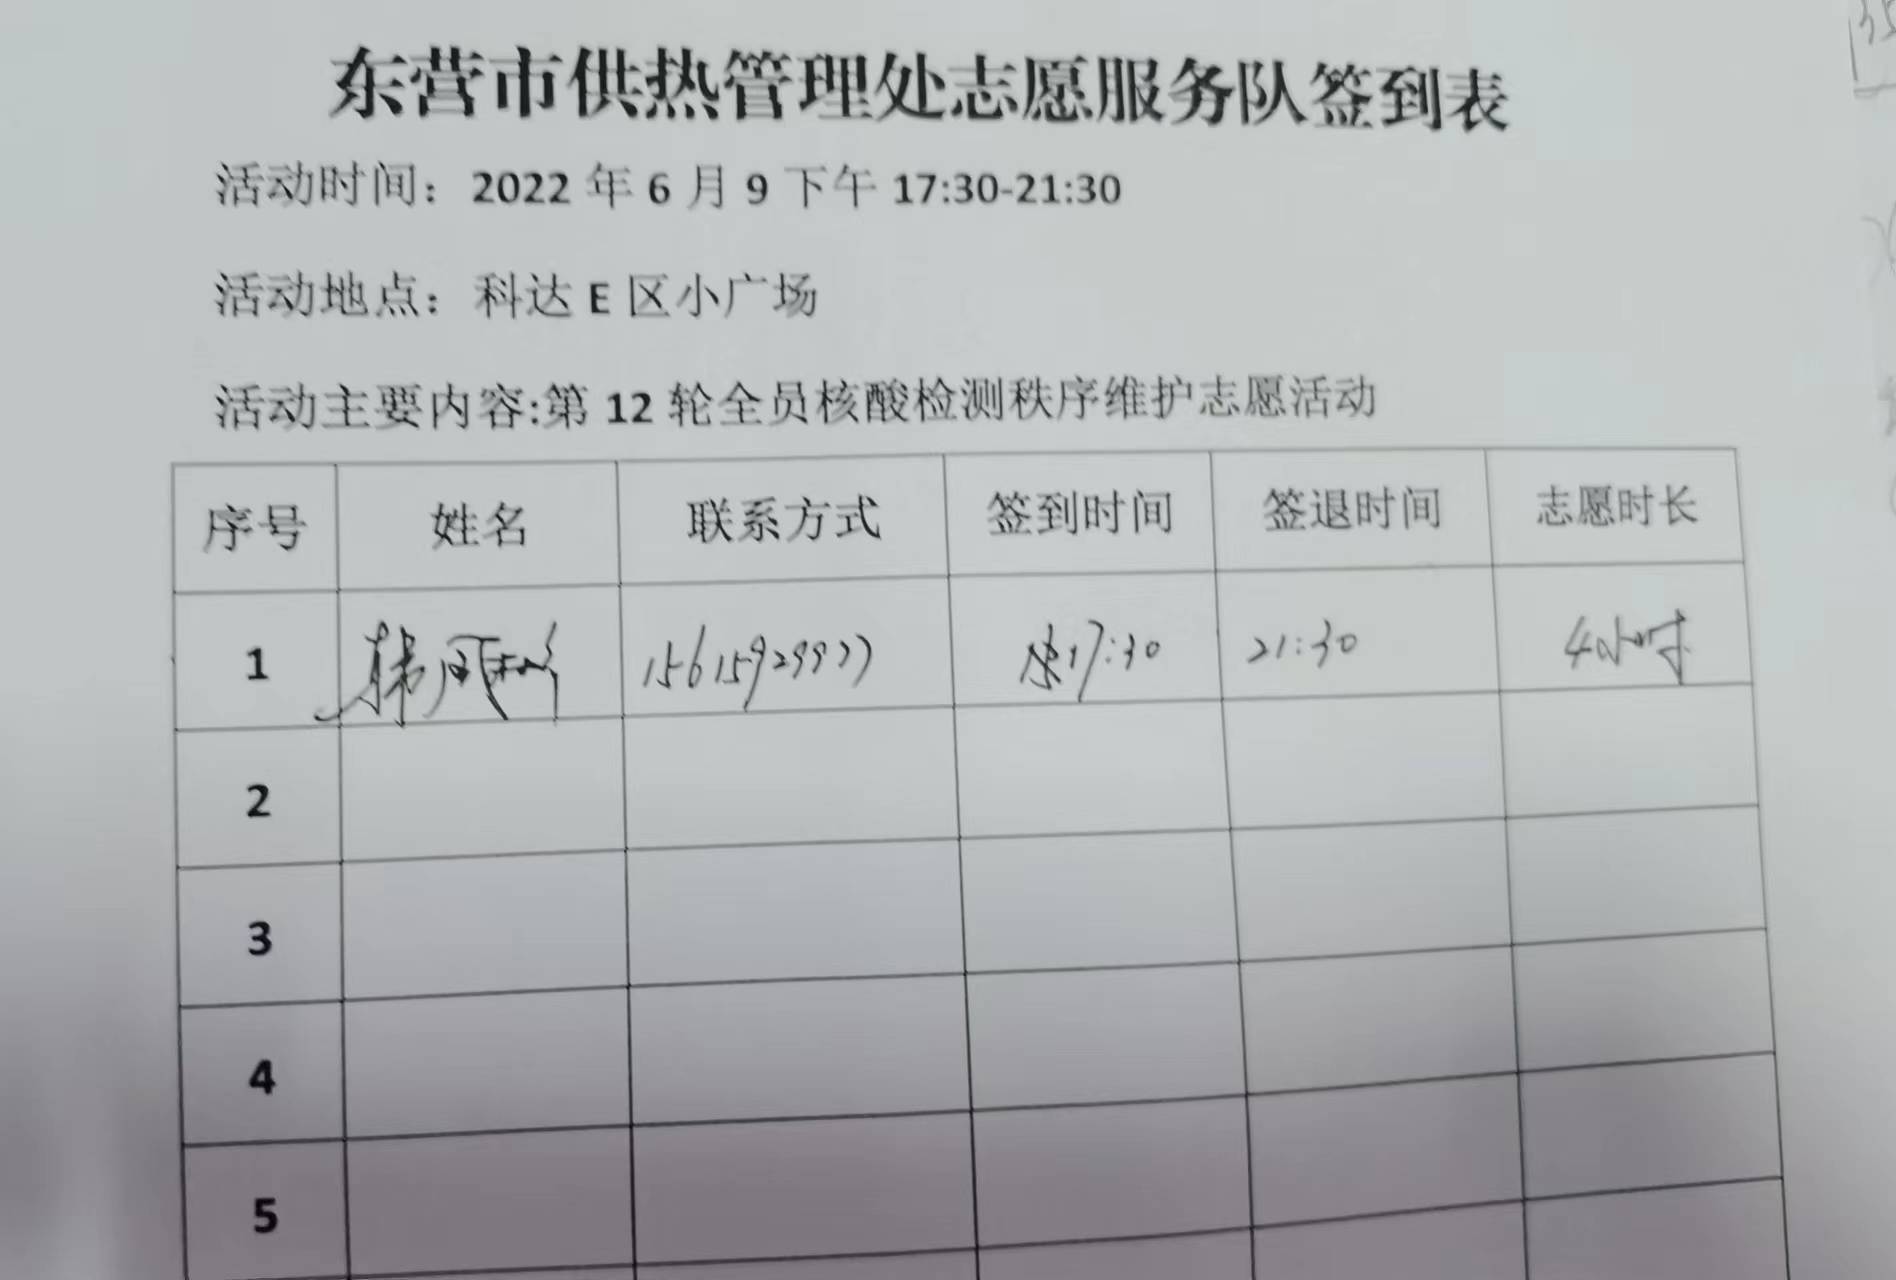 东营市供热管理处志愿服务队签到表
活动时间：2022 年 6 月 9 下午 17:30-21:30
活动地点：科达 E 区小广场
活动主要内容:第 12 轮全员核酸检测秩序维护志愿活动
序号 姓名 联系方式 签到时间 签退时间 志愿时长
1 韩凤彬 15615929977 17:30 21:30 4小时
2
3
4
5